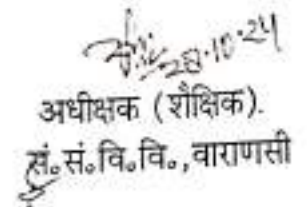 28.10.24
अधीक्षक (शैक्षिक).
सं.सं.वि.वि.,वाराणसी